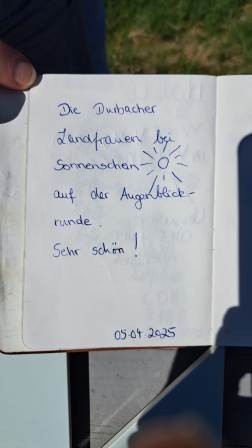 Die Durbacher
Landfrauen bei
Sonnenschein
auf der Augenblick-
runde.
Sehr schön!
05.04.2025